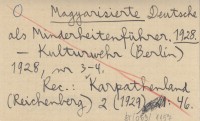 O Magyarisierte Deutsche
als Minderheitenführer. 1928.
– Kulturwehr (Berlin)
1928, nr 3-4.
Rec.: Karpathenland
(Reichenberg) 2 (1929) 46.